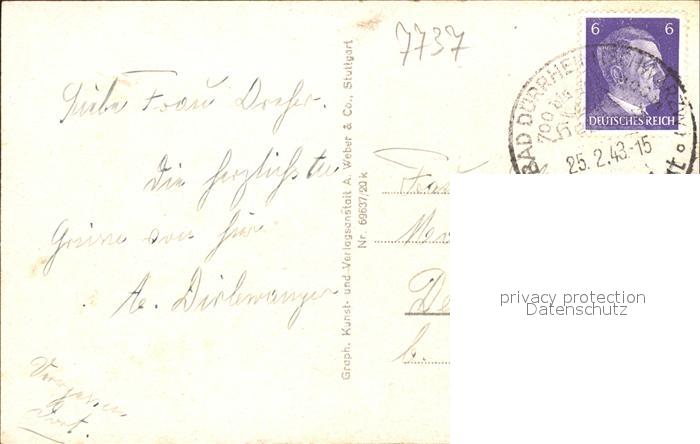 7737
6 6
DEUTSCHES REICH
BAD DÜRRHEIM
25.2.43.-15
Liebe Frau Dreher.
Die herzlichsten
Grüsse von hier
A. Dirlewanger
Graph. Kunst- und Verlagsanstalt A. Weber & Co., Stuttgart
Nr. 69637/20 k
Frau
De
b.
privacy protection
Datenschutz